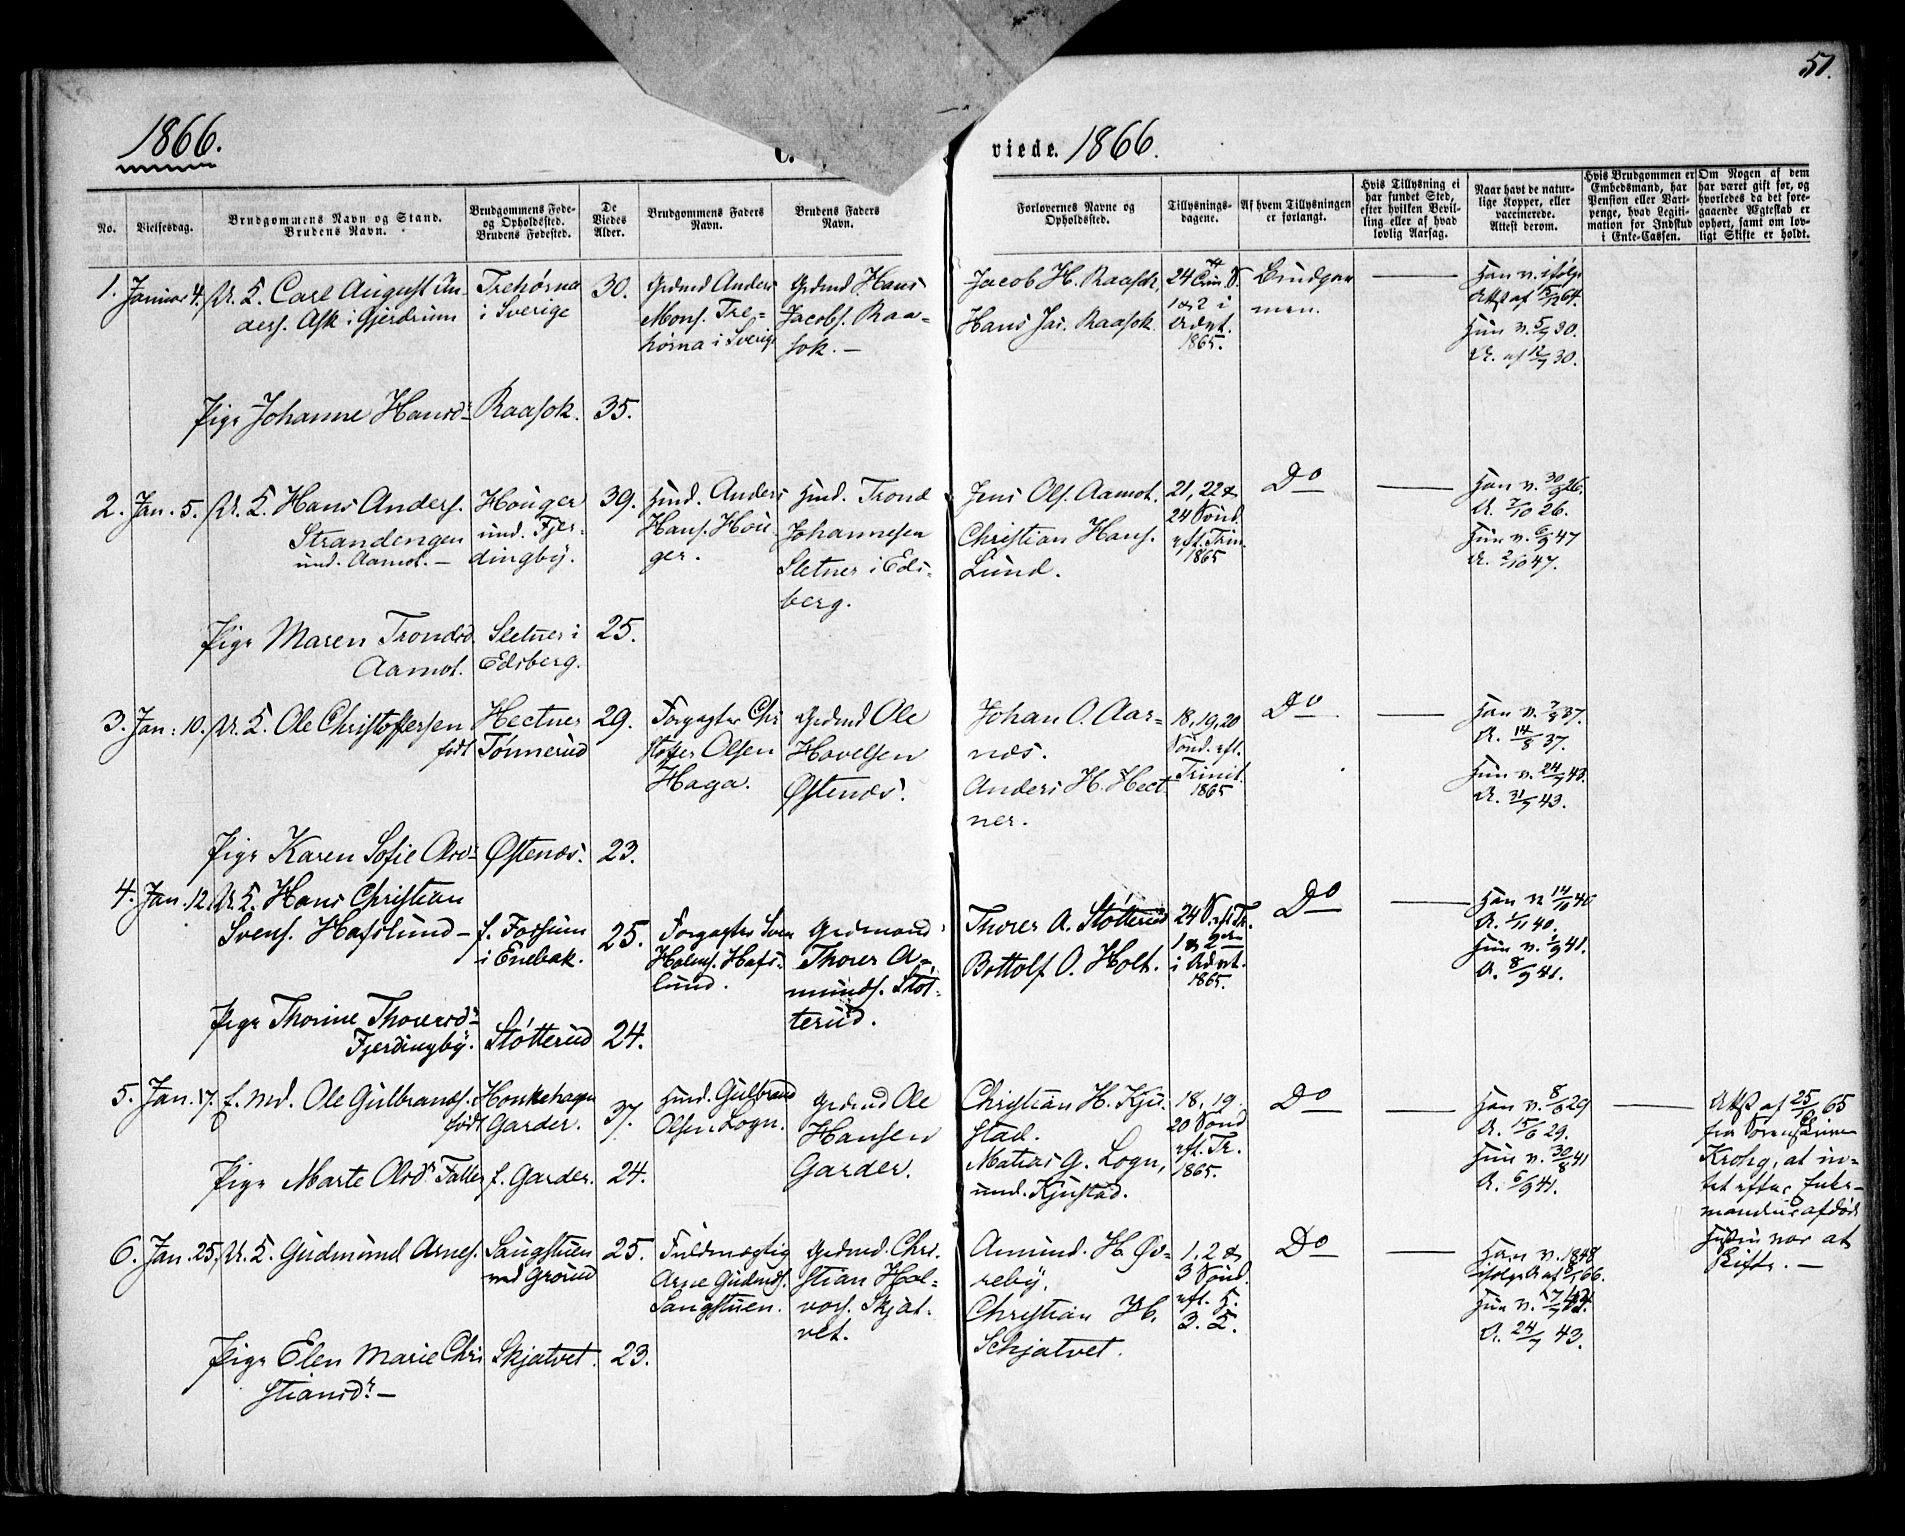 51.
1866.
C.
viede. 1866.
No.
Vielsesdag.
Brudgommens Navn og Stand.
Brudens Navn.
Brudgommens Føde-
og Opholdssted.
Brudens Fødested.
De
Viedes
Alder.
Brudgommens Faders
Navn.
Brudens Faders
Navn.
Forlovernes Navne og
Opholdssted.
Tillysnings-
dagene.
Af hvem Tillysningen
er forlangt.
Hvis Tillysning ei
har fundet Sted,
efter hvilken Bevil-
ling eller af hvad
lovlig Aarsag.
Naar havt de natur-
lige Kopper, eller
vaccinerede.
Attest derom.
Hvis Brudgommen er
Embedsmand, har
Pension eller Vart-
penge, hvad Legiti-
mation for Indskud
i Enke-Cassen.
Om Nogen af dem
har været gift før, og
hvorledes da det fore-
gaaende Ægteskab er
ophørt, samt om lov-
ligt Skifte er holdt.
1. Januar 4.
U. K. Carl August An-
ders. Ask i Gjerdrum
Trehørna
i Sverige
30.
Grdmd Anders
Mons. Tre-
hørna i Sverige
Grdmd. Hans
Jacobs. Raa-
sok. –
Jacob H. Raasok,
Hans Jac. Raasok
1 & 2 i
Advt.
1865.
Brudgom
men.
Han v. ifølge
Att af 15/12 64.
Hun v. 5/7 30.
A. af 12/7 30.
Pige Johanne Hansd.
Raasok.
35.
2. Jan. 5.
U. K. Hans Anders.
Strandengen
und. Aamot. –
Houger
und. Fjer-
dingby.
39.
Husmd. Anders
Hans. Hou-
ger.
Husmd. Trond
Johannesen
Sletner i Eds-
berg.
Jens Ols. Aamot.
Christian Hans.
Lund.
21, 22 &
24 Sønd.
eft. Trin.
1865
Do
Han v. 30/9 26.
A. 7/10 26.
Hun v. 6/9 47
A. 2/10 47.
Pige Maren Trondsd.
Aamot.
Sletner i
Edsberg.
25.
3. Jan. 10.
U. K. Ole Christoffersen
født
Hectner
Tønnerud
29.
Forpagter Chri
stoffer Olsen
Haga.
Grdmd Ole
Havelsen
Østenæs.
Johan O. Aar-
næs.
Anders H. Hect
ner.
18, 19, 20
Sønd. eft.
Trinit.
1865
Do
Han v. 7/8 37.
A. 14/8 37.
Hun v. 24/7 43.
A. 31/7 43.
Pige Karen Sofie Olsd.
Østenæs.
23.
4. Jan. 12.
U. K. Hans Christian
Svens. Hafslund –
f. Fossum
i Enebak.
25.
Forpagter Sven
Halvors. Hafs-
lund.
Grdmand
Thorer A-
munds. Støt-
terud.
Thorer A. Støtterud
Bottolf O. Holt.
24 S. eft. Tr.
1 & 2den
i Advt.
1865.
Do
Han v. 14/10 40
A. 1/11 40.
Hun v. 1/9 41.
A. 8/9 41.
Pige Thorine Thorersd.
Fjerdingby.
Støtterud
24.
5. Jan. 17.
f. Md. Ole Gulbrands.
født
Honkehagen
Garder.
37.
Husmd. Gulbrand
Olsen Logn.
Grdmd Ole
Hansen
Garder.
Christian H. Kju-
stad.
Mathis G. Logn,
und. Kjustad.
18, 19.
20 Sønd
eft. Tr.
1865.
Do
Han v. 8/6 29
A. 15/6 29.
Hun v. 30/8 41
A. 6/9 41.
Att af 25/10 65
fra Sorenskriver
Krohg, at in-
tet efter Enke-
mandens afdøde
Hustru var at
skifte. –
Pige Marte Olsdr Faller
f. Garder.
24.
6. Jan. 25.
U. K. Gudmund Arnes.
Saugstuen
ved Grorud
25.
Fuldmægtig
Arne Gudmds.
Saugstuen.
Grdmd. Chri-
stian Hal-
vors. Skjat-
vet.
Amund. H. Øv-
reby,
Christian H.
Schjatvet.
1, 2 &
3 Sønd.
eft. H.
3. K.
Do
Han v. 1848
ifølge A af 8/1 66.
Hun v. 17/7 43.
A. 24/7 43.
Pige Elen Marie Chri
stiansdr. –
Skjatvet.
23.